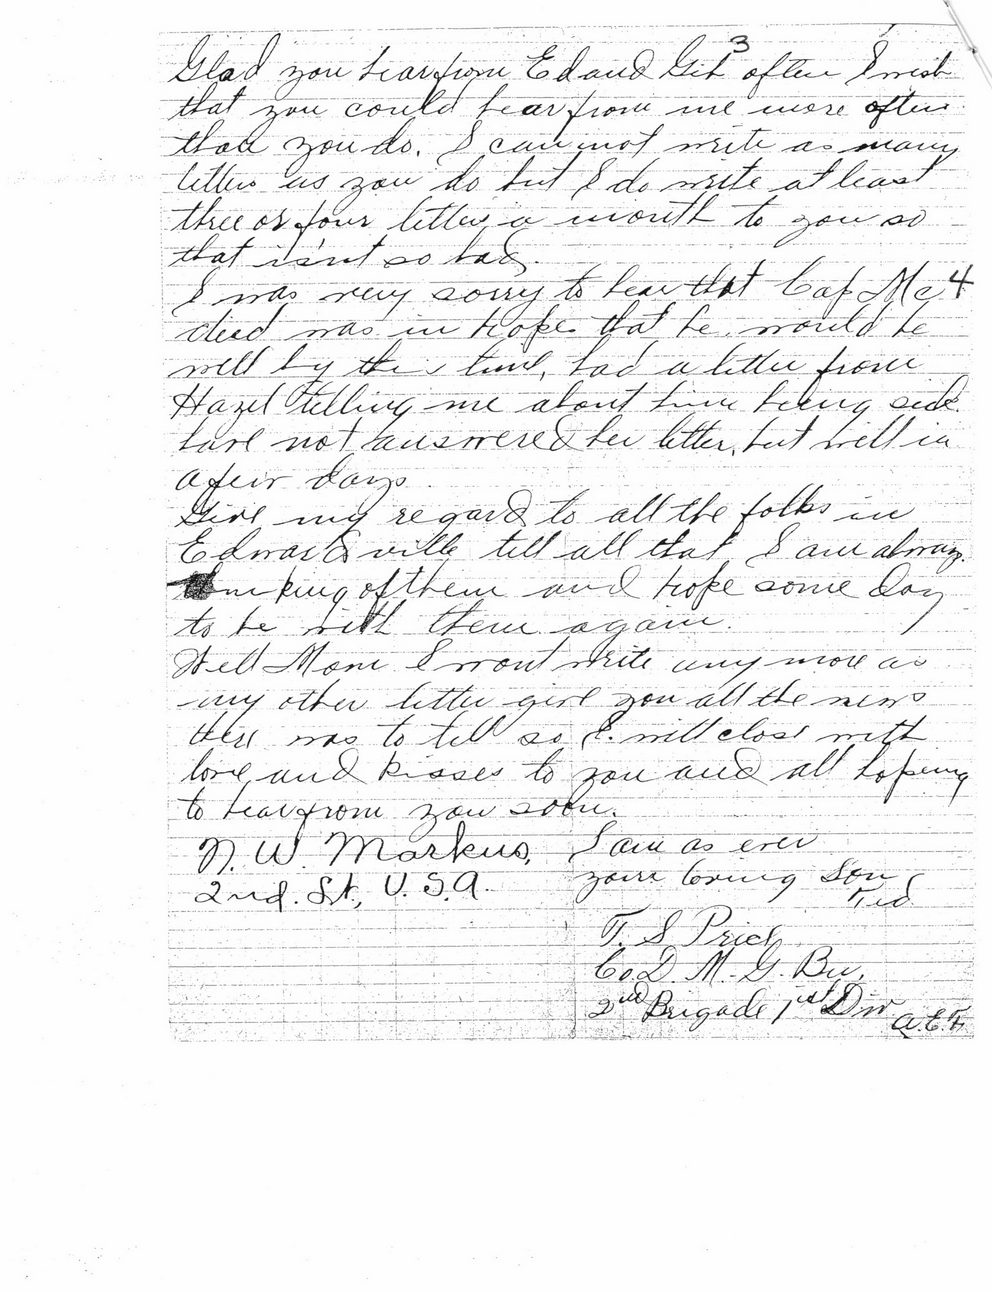 3
Glad you hear from Ed and Gib often I wish
that you could hear from me more often
than you do. I can not write as many
letters as you do but I do write at least
three or four letters a month to you so
that isn't so bad.
4
I was very sorry to hear that Cap Mc
died was in hopes that he would be
well by this time, had a letter from
Hazel telling me about him being sick.
have not answered her letter, but will in
a few days
Give my regard to all the folks in
Edwardsville tell all that I am always
thinking of them and hope some day
to be with them again.
Well Mom I wont write any more as
my other letter give you all the news
there was to tell so I will close with
love and kisses to you and all hoping
to hear from you soon.
I am as ever
your loving Son
Ted
N. W. Markus,
2nd. Lt., U.S.A.
T. S. Price
Co. D. M. G. Bn.
2nd Brigade 1st Div
A.E.F.